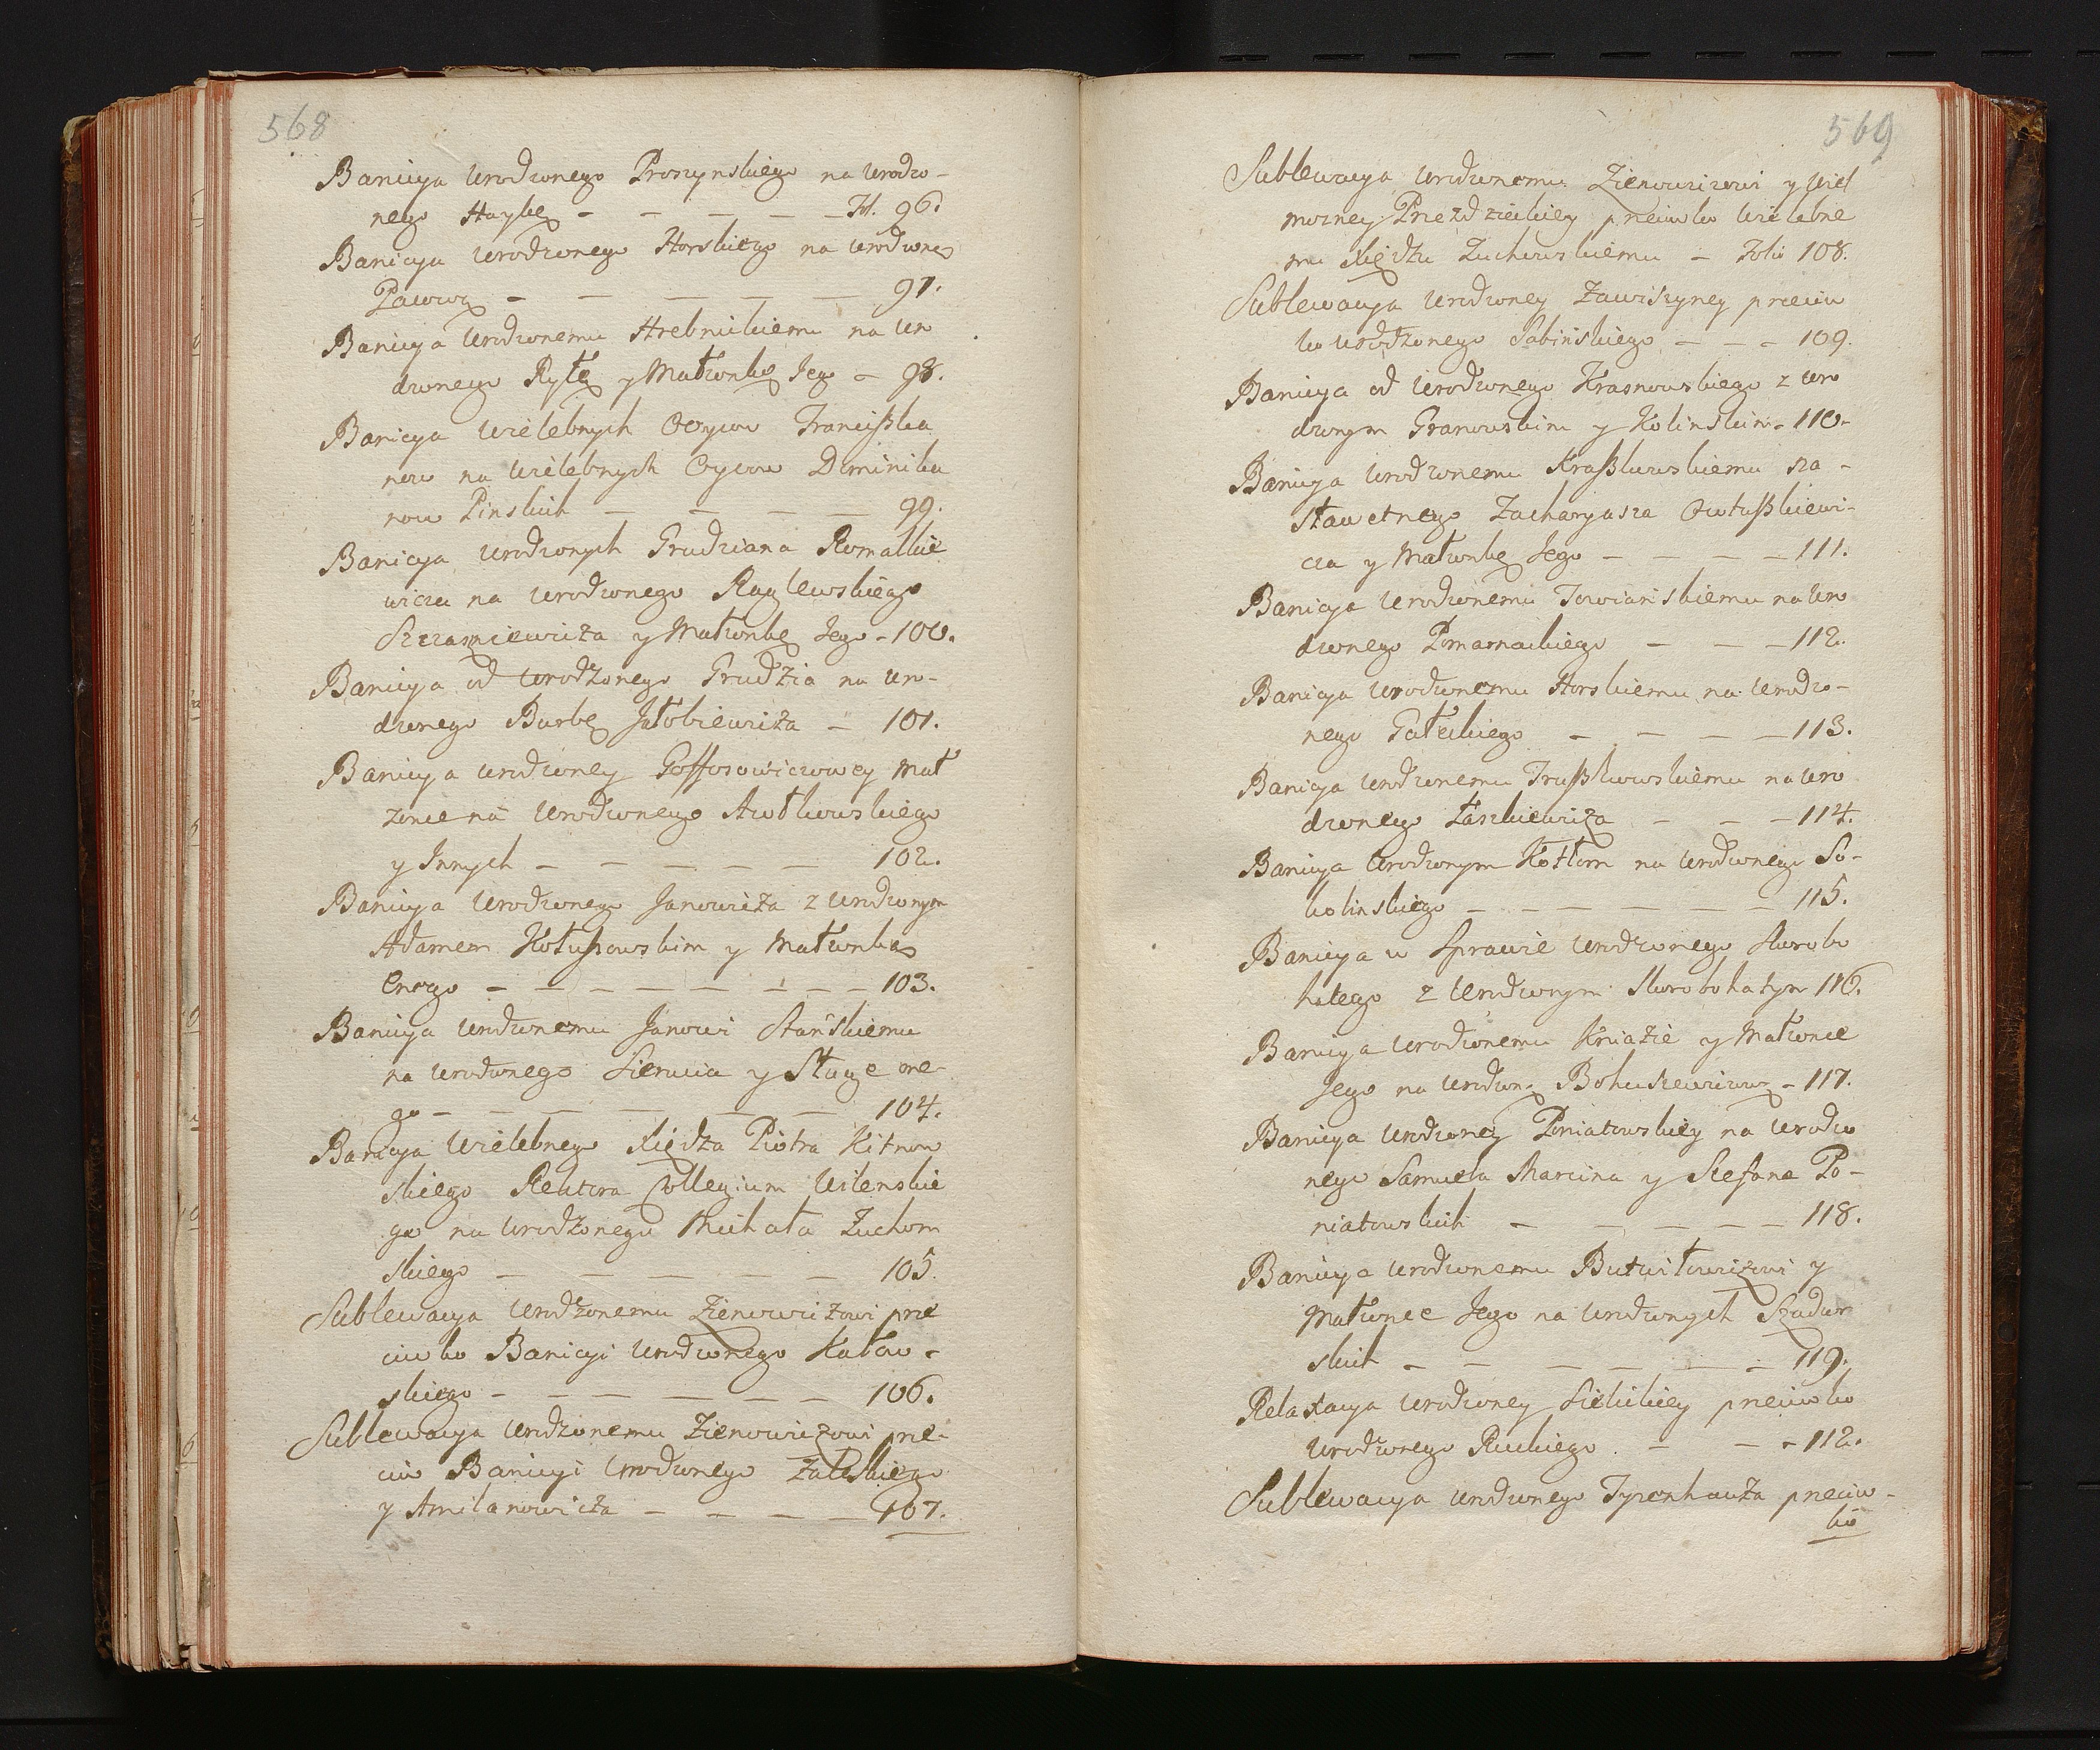 568
Banicya Urodzonego Proszynskiego na Urodzo-
nego Haybę - - - - - Fol. 96.
Banicya Urodzonego Horskiego na Urodzoną
Pacową - - - - - 97.
Banicya Urodzonemu Hrebnickiemu na Uro
dzonego Rytę y Małżonkę Jego - 98.
Banicya Wielebnych Oycow Franciszka
now na Wielebnych Oycow Dominika
now Pinskich - - - - 99.
Banicya Urodzonych Grudziana Romaskie
wicza na Urodzonego Raglewskiego
Szczasniewicza y Małżonkę Jego - 100.
Banicya od Urodzonego Grudzia na Uro-
dzonego Burbę Jakobiewicza - 101.
Banicya Urodzoney Goffosowiczowey Mał
żonce na Urodzonego Awłkowskiego
y Innych - - - - - 102.
Banicya Urodzonego Janowicza z Urodzonym
Adamem Kotuszowskim y Małżonką
Onego - - - - - - - - 103.
Banicya Urodzonemu Janowi Stańskiemu
na Urodzonego Siemcia y Sługę one-
go - - - - - - 104.
Banicya Wielebnego Xiędza Piotra Kitnow
skiego Rektora Collegium Wilenskie
go na Urodzonego Michała Zuchow
skiego - - - - - - 105.
Sublewacya Urodzonemu Zienowiczowi prze
ciwko Banicyi Urodzonego Kałow-
skiego - - - - - - - 106.
Sublewacya Urodzonemu Zienowiczowi prze-
ciw Banicyi Urodzonego Załeskiego
y Smilanowicza - - - - 107.
569
Sublewacya Urodzonemu Zienowiczowi y Wiel
możney Przezdzieckiey przeciwko Wielebne
mu Xiędzu Zuchowskiemu - Folio 108.
Sublewacya Urodzoney Zawiszyney przeciw
ko Urodzonego Sabińskiego - - - 109.
Banicya od Urodzonego Krasnowskiego z Uro
dzonym Granowskim y Kolinskim - 110.
Banicya Urodzonemu Kraszkowskiemu sza-
sławetnego Zacharyasza Owtuszkiewi-
cza y Małżonkę Jego - - - - 111.
Banicya Urodzonemu Towiańskiemu na Uro
dzonego Pomarnackiego - - - 112.
Banicya Urodzonemu Horskiemu na Urodzo-
nego Gałeckiego - - - - 113.
Banicya Urodzonemu Truszkowskiemu na Uro
dzonego Łaszkiewicza - - - 114.
Banicya Urodzonym Kotłom na Urodzonego So-
kolinskiego - - - - - - 115.
Banicya w Sprawie Urodzonego Skorobo
hatego z Urodzonym Skorobohatym 116.
Banicya Urodzonemu Kniazie y Małżonce
Jego na Urodzoną Bohuszewiczową - 117.
Banicya Urodzoney Poniatowskiey na Urodzo
nego Samuela Marcina y Stefana Po-
niatowskich - - - - - 118.
Banicya Urodzonemu Butwiłowiczowi y
Małżonce Jego na Urodzonych Szadur
skich - - - - - - 119.
Relaxacya Urodzoney Sielickiey przeciwko
Urodzonego Ruckiego - - - 112.
Sublewacya Urodzonego Tyzenhauza przeciw-
ko